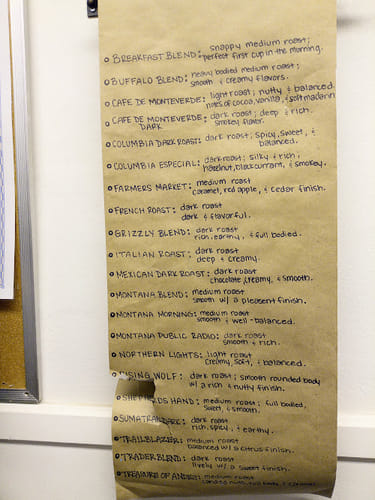 BREAKFAST BLEND: snappy medium roast;
perfect first cup in the morning.
BUFFALO BLEND: heavy bodied medium roast;
smooth & creamy flavors.
CAFE DE MONTEVERDE: light roast; nutty & balanced.
notes of cocoa, vanilla, & soft madarin
CAFE DE MONTEVERDE: dark roast; deep & rich.
DARK smokey flavor.
COLUMBIA DARK ROAST: dark roast; spicy, sweet, &
balanced.
COLUMBIA ESPECIAL: dark roast; silky & rich,
hazelnut, black currant, & smokey.
FARMERS MARKET: medium roast
caramel, red apple, & cedar finish.
FRENCH ROAST: dark roast
dark & flavorful.
GRIZZLY BLEND: dark roast
rich, earthy, & full bodied.
ITALIAN ROAST: dark roast
deep & creamy.
MEXICAN DARK ROAST: dark roast
chocolate, creamy, & smooth.
MONTANA BLEND: medium roast
smooth w/ a pleasent finish.
MONTANA MORNING: medium roast
smooth & well-balanced.
MONTANA PUBLIC RADIO: dark roast
smooth & rich.
NORTHERN LIGHTS: light roast
creamy, soft, & balanced.
RISING WOLF: dark roast; smooth rounded body
w/ a rich & nutty finish.
SHEPHERDS HAND: medium roast; full bodied,
sweet, & smooth.
SUMATRAN DARK: dark roast
rich, spicy, & earthy.
TRAILBLAZER: medium roast
balanced w/ a citrus finish.
TRADER BLEND: dark roast
lively w/ a sweet finish.
TREASURE OF ANDES: medium roast
nuts, full body, &